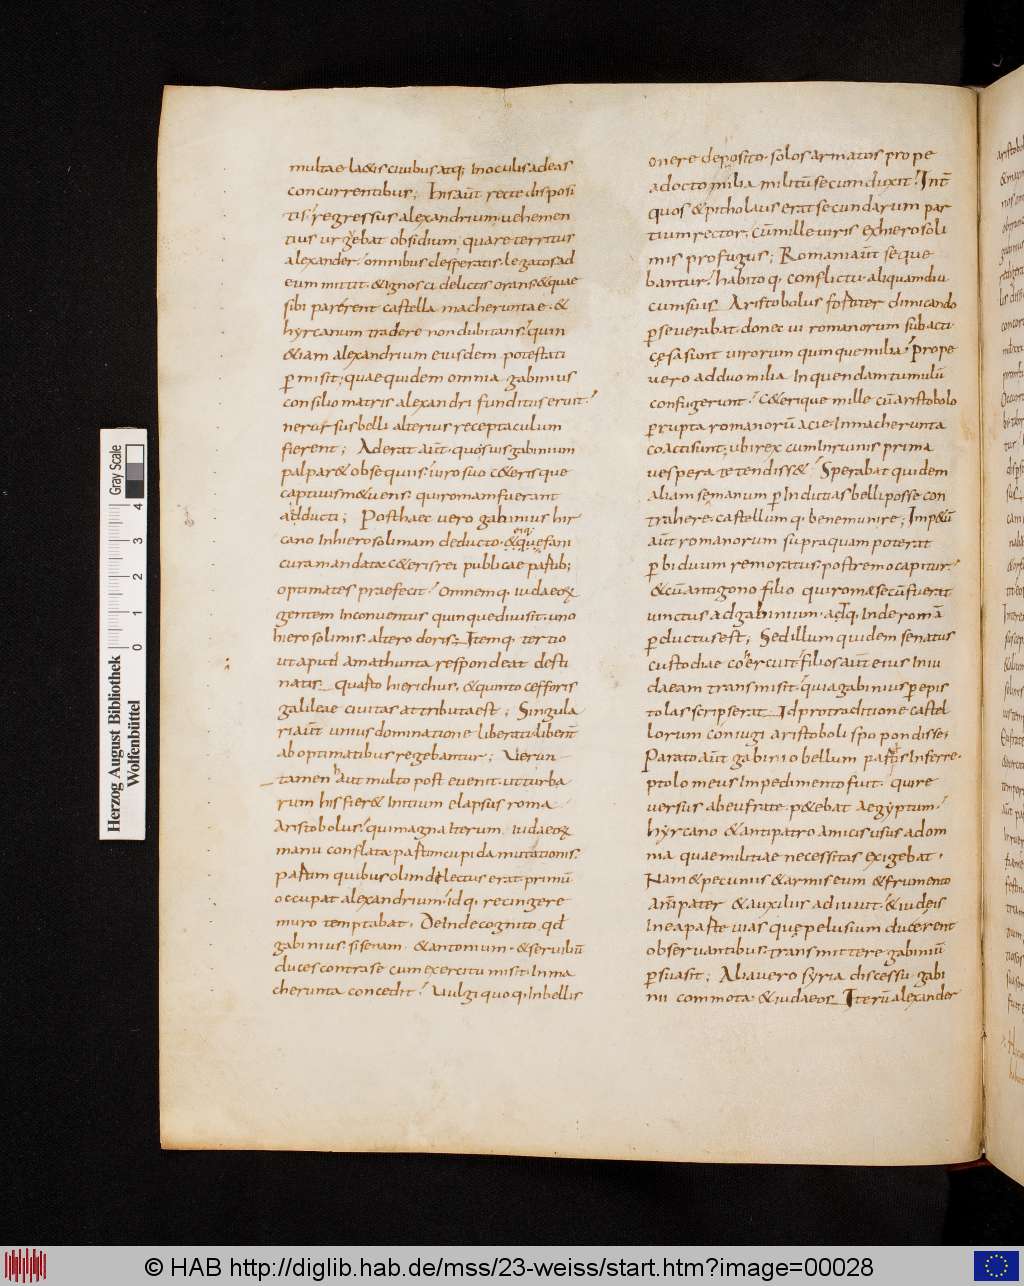 multae laetis civibus atq; in oculis ad eas
concurrentibus; His aut recte disposi
tis regressus alexandrium vehemen
tius urgebat obsidium quare territus
alexander omnibus desperatis legatos ad
eum mittit & ignosci delictis orans & quae
sibi parerent castella macherunta e &
hyrcanum tradere non dubitans quin
& iam alexandrium eiusdem potestati
p misit; quae quidem omnia gabinius
consilio matris alexandri funditus eruit
ne rursus belli alterius receptaculum
fierent; Aderat aut quos uis gabinium
palpar& obsequiis uiro suo c&eris que
captiuis m&uens qui romam fuerant
adducti; Posthaec vero gabinius hir
cano in hierosolimam deducto &que fani
cura mandata c&eris rei publicae partib;
optimates praefecit Omnemq iudaeoꝝ
gentem in conuentus quinque diuisit uno
hierosolimis altero doris Itemq tertio
ut apud amathunta respondeat desti
natis quarto hierichus & quinto cefforis
galileae civitas attributa est; Singula
ri aut unius dominatione liberati libent
ab optimatibus regebantur; Verun
tamen haut multo post evenit ut turba
rum his fier& initium elapsus roma
Aristobolus qui magna iterum iudaeoꝝ
manu conflata partim cupida mutationis
partim quibus olim dilectus erat primu
occupat alexandrium id q; recingere
muro temptabat Deinde cognito qd
gabinius sisenam & antonium & seruiliu
duces contra se cum exercitu misit in ma
cherunta concedit Vulgi quoq inbellis
onere deposito solos armatos prope
ad octo milia militu secum duxit Int
quos & pitholaus erat secundarum par
tium rector cu mille viris ex hierosoli
mis profugus; Romani aut seque
bantur habito q conflictu aliquamdiu
cum suis Aristobolus fortiter dimicando
pseverabat donec vi romanorum subacti
cęsa sunt virorum quinque milia prope
vero ad duo milia in quendam tumulu
confugerunt C&eri que mille cu aristobolo
prupta romanoru acie in macherunta
coacti sunt; ubi rex cum in ruinis prima
vespera te tendiss& Sperabat quidem
aliam se manum p indutias belli posse con
trahere castellum q benemunire; Imp&u
aut romanorum supra quam poterat
p biduum remoratus postremo capitur
& cu antigono filio qui romae secu fuerat
vinctus ad gabinium adq inde roma
pductus est; Sed illum quidem senatus
custodiae cohercuit filios aut eius in iu
daeam transmisit quia gabinius p epis
tolas scripserat Id pro traditione castel
lorum coniugi aristoboli spopondisse;
Parato aut gabinio bellum parthis inferre
ptolomeus inpedimento fuit qui re
versus ab eufrate p&ebat Aegyptum
hyrcano & antipatro amicis usus ad om
nia quae militiae necessitas exigebat
Nam & pecuniis & armis eum & frumento
antipater & auxiliis adiuuit & iudeis
in ea parte uias quę pelusium ducerent
observantibus transmittere gabiniu
psuasit; Alia vero syria discessu gabi
nii commota & iudaeos Iteru alexander
Herzog August Bibliothek
Wolfenbüttel
Gray Scale
0 1 2 3 4
© HAB http://diglib.hab.de/mss/23-weiss/start.htm?image=00028